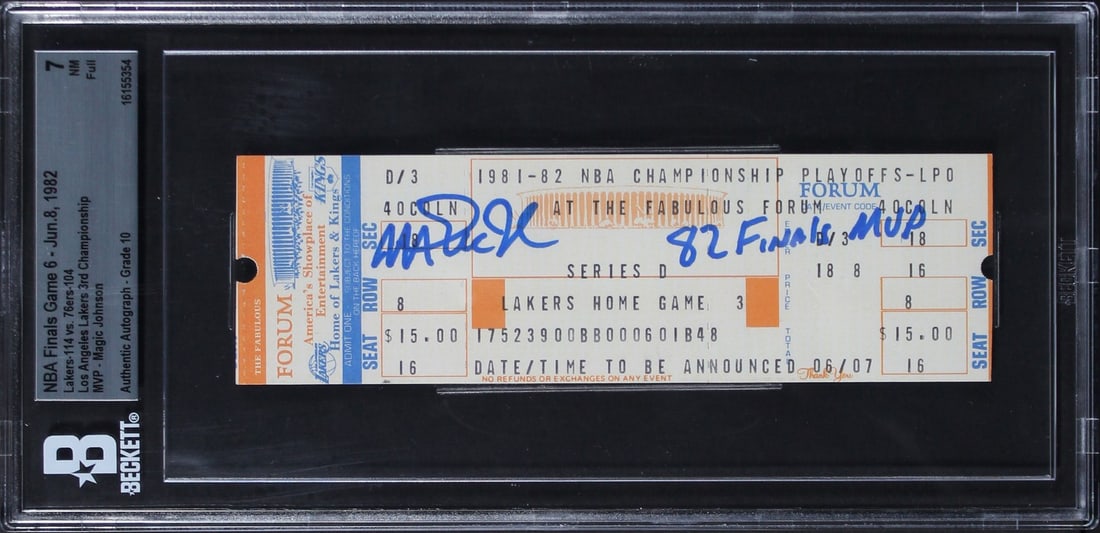 7
NM
Full
16155354
NBA Finals Game 6 - Jun.8, 1982
Lakers-114 vs. 76ers-104
Los Angeles Lakers 3rd Championship
MVP - Magic Johnson
Authentic Autograph - Grade 10
B
BECKETT®
THE FABULOUS
FORUM
America's Showplace of
Entertainment
Home of Lakers & Kings
LAKERS
KINGS
ADMIT ONE - SUBJECT TO THE CONDITIONS
ON THE BACK HEREOF
SEC
ROW
SEAT
D/3
40COLN
18
8
$15.00
16
1981-82 NBA CHAMPIONSHIP PLAYOFFS-LPO
AT THE FABULOUS FORUM
82 Finals MVP
SERIES D
LAKERS HOME GAME 3
17523900BB000601B48
DATE/TIME TO BE ANNOUNCED 06/07
NO REFUNDS OR EXCHANGES ON ANY EVENT
FORUM
EVENT CODE
40COLN
D/3
18
18 8
16
PRICE
TOTAL
8
$15.00
16
Thank You
SEC
ROW
SEAT